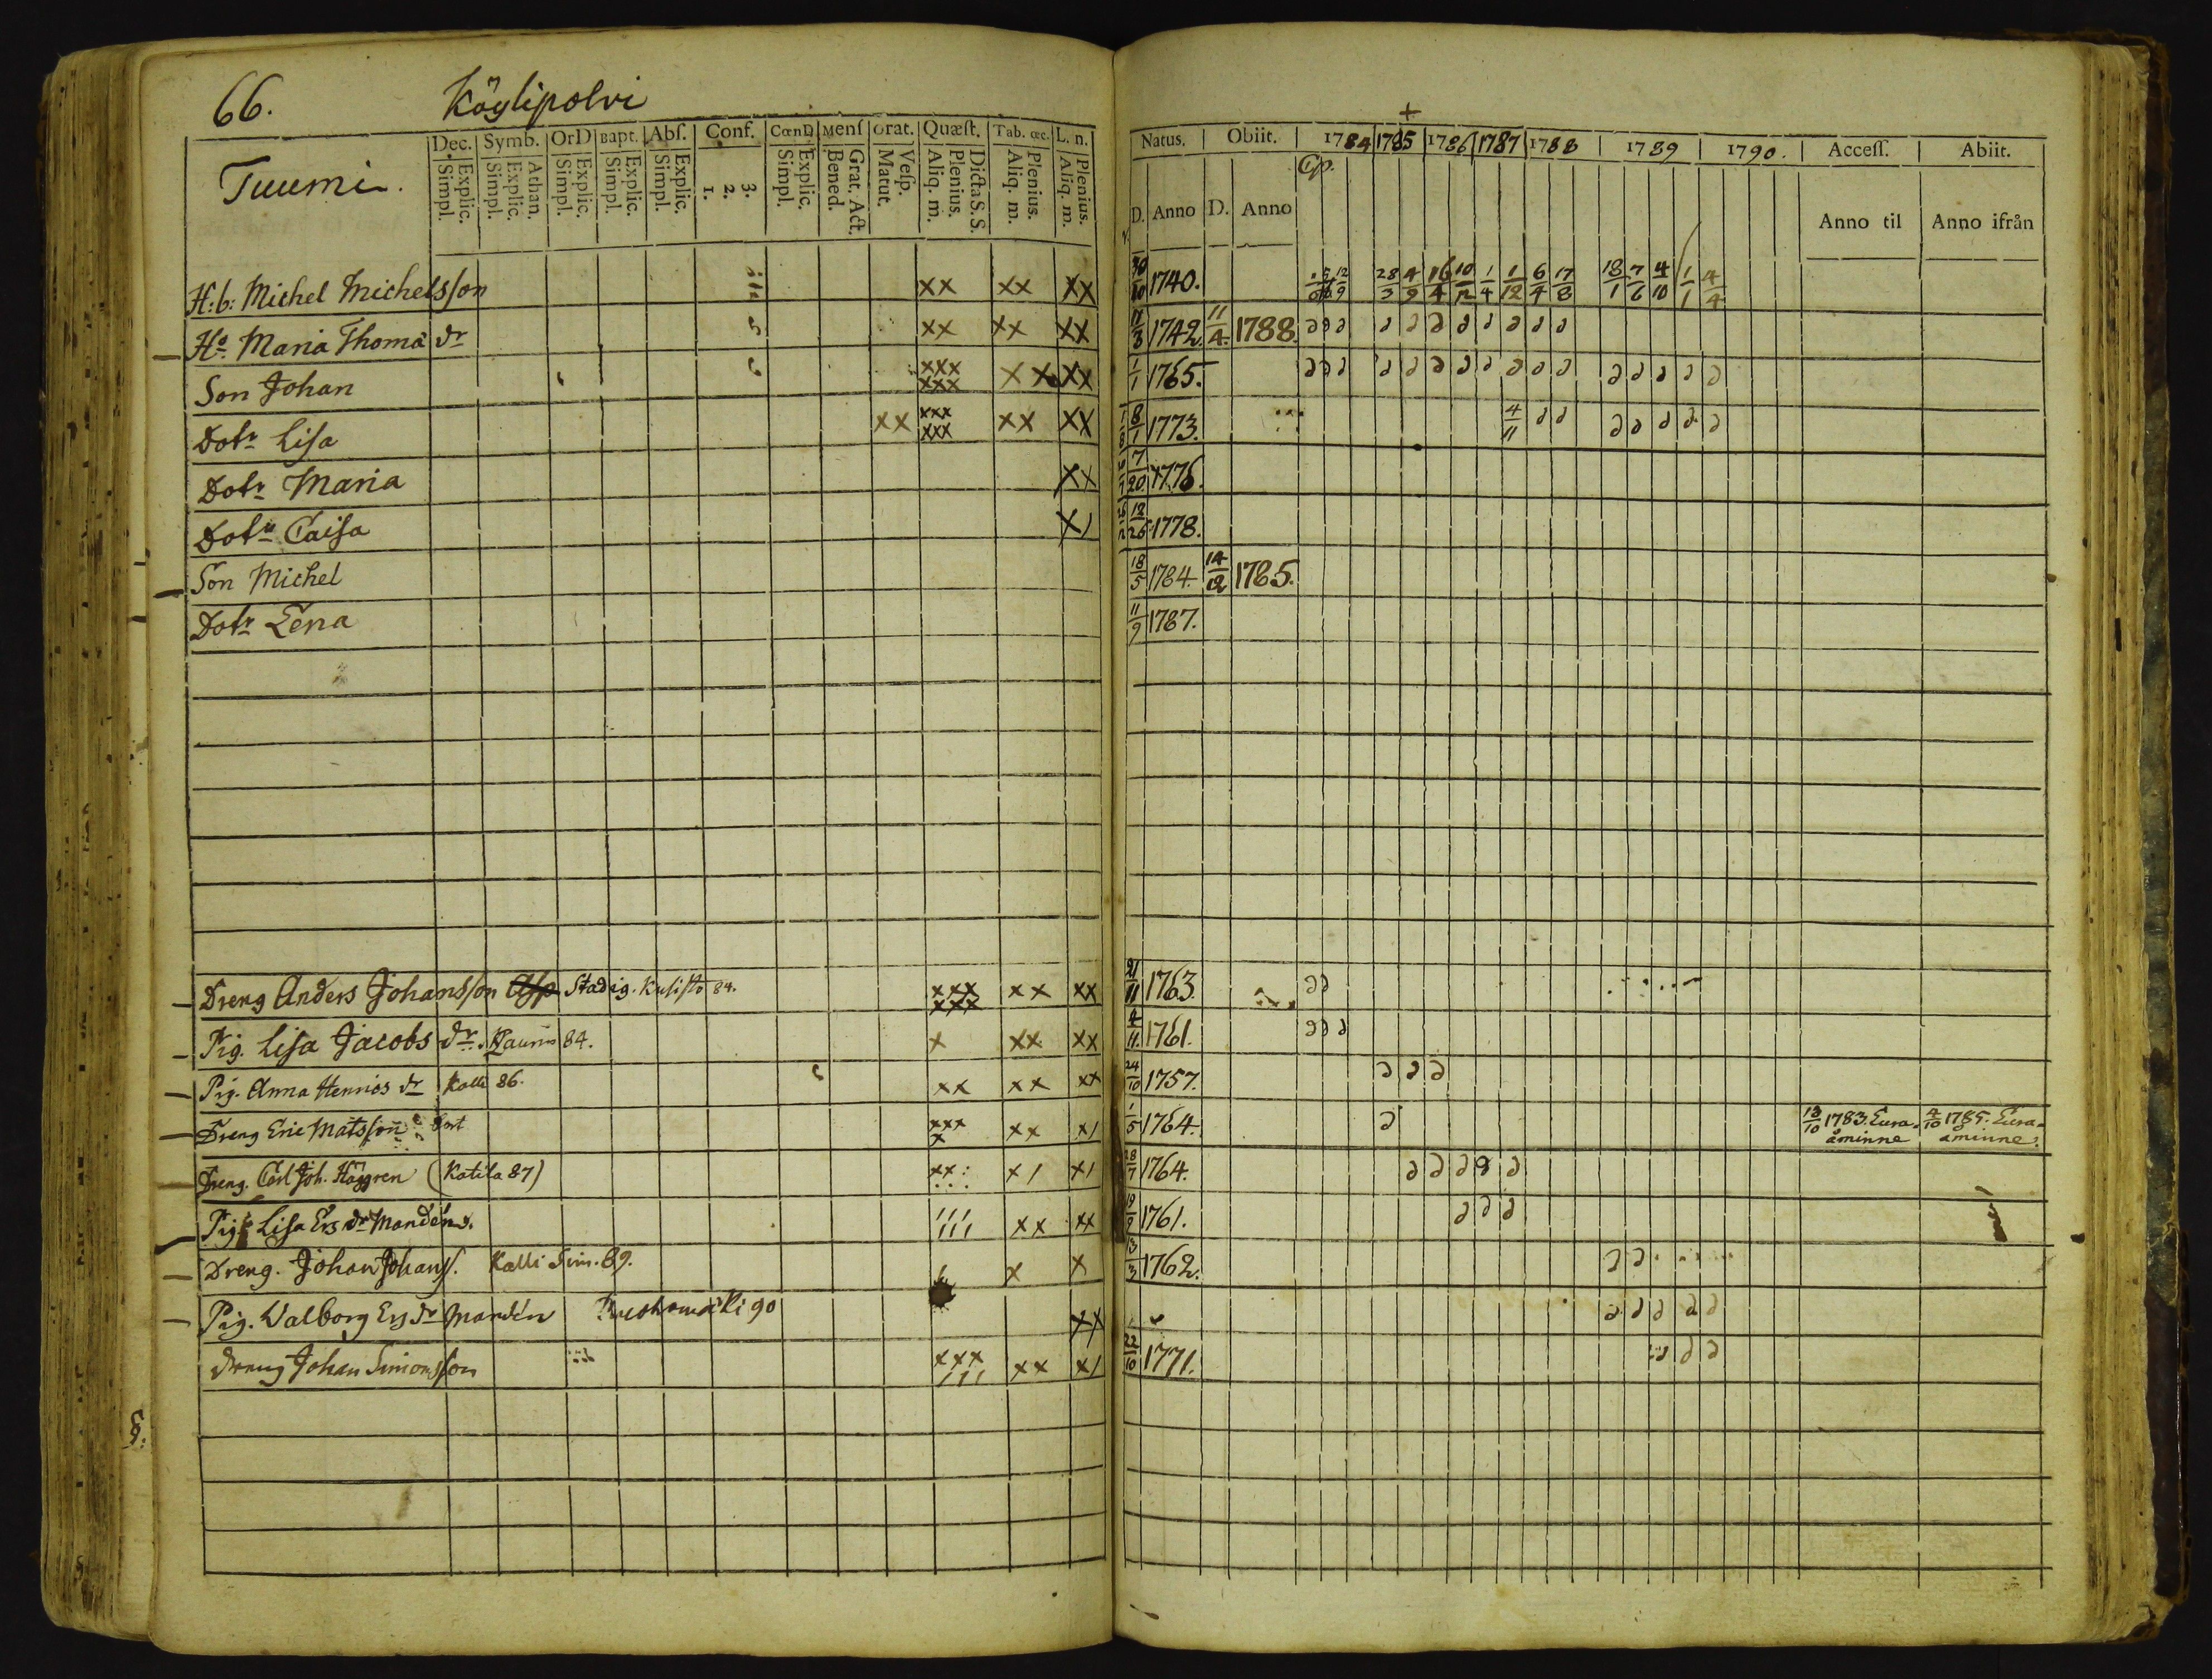 66. Köylipolvi
Tuumi.
Dec. Symb. OrD Bapt. Abſ. Conf. CœnD Menſ Orat. Quæſt. Tab. œc. L. n.
Explic. Simpl. Athan. Explic. Simpl. Explic. Simpl. Explic. Simpl. Explic. Simpl. 3. 2. 1. Explic. Simpl. Grat. Act. Bened. Veſp. Matut. Dicta S. S. Plenius. Aliq. m. Plenius. Aliq. m. Plenius. Aliq. m.
Natus. Obiit. 1784 1785 1786 1787 1788 1789 1790. Acceſſ. Abiit.
D. Anno D. Anno Anno til Anno ifrån
H:b: Michel Michelsſon xx xx xx 30/10 1740. 12/9 28/3 4/9 16/4 10/12 1/4 1/12 6/4 17/8 18/1 7/6 4/10 1/1 4/4
Hu Maria Thomæ dr xx xx xx 1742. 11/4 1788.
Son Johan xxx xxx xx xx 1/1 1765.
Dotr Liſa xx xxx xxx xx xx 8/1 1773. 4/11
Dotr Maria xx 7/20 1776.
Dotr Caiſa x/ 12/26 1778.
Son Michel 18/5 1784. 14/12 1785.
Dotr Lena 11/9 1787.
Dreng Anders Johansſon Stadig. Kuliſto 84. xxx xxx xx xx 21/11 1763.
Pig. Liſa Jacobs dr. 84. x xx xx 4/11. 1761.
Pig. Anna Henrics dr Kalli 86. xx xx xx 24/10 1757.
Dreng Eric Matsſon Bort xxx x xx x/ 1/5 1764. 13/10 1783. Eura- 4/10 1785. Eura-
åminne åminne.
Dreng. Carl Joh. Häggren (Katila 87) xx x/ x/ 28/7 1764.
Pig. Liſa Ers dr Mandén. /// /// xx xx 1761.
Dreng. Johan Johansſ. Kalli Sim. 89. x x 1762.
Pig. Walborg Ers dr Mandén 90 xx
Dreng Johan Simonsſon xxx /// xx x/ 22/10 1771.